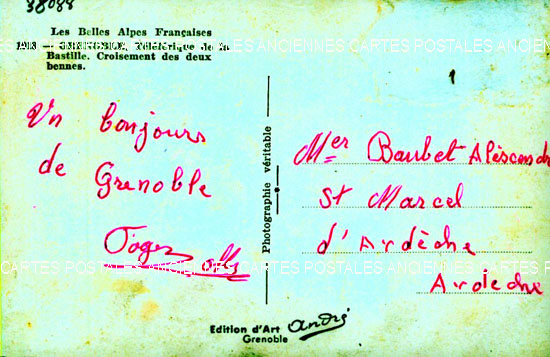 38088
Les Belles Alpes Françaises
GRENOBLE. Téléférique de la
Bastille. Croisement des deux
bennes.
CARTES POSTALES ANCIENNES CARTES POSTALES ANCIENNES CARTES POSTALES
1
Un bonjours
de Grenoble
Roger
Photographie véritable
Mer Baubet Aléscandre
St Marcel
d'Ardèche
Ardeche
CARTES POSTALES ANCIENNES CARTES POSTALES ANCIENNES CARTES POSTALES
Edition d'Art André
Grenoble